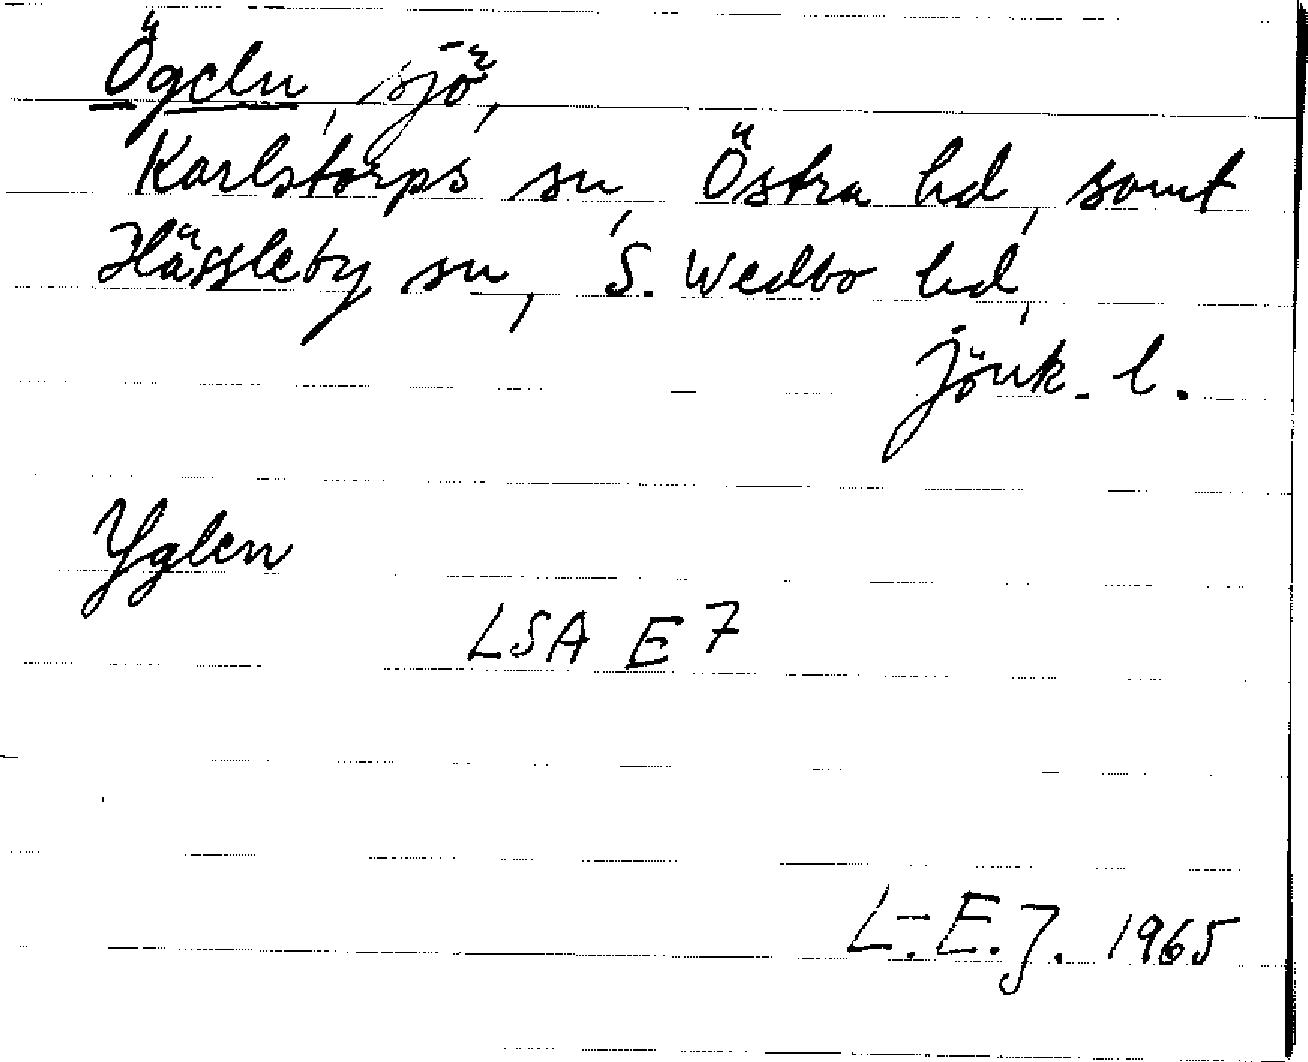 Ögeln, sjö,
Karlstorps sn, Östra hd, samt
Hässleby sn, S. Wedbo hd,
Jönk. l.
Yglen
LSA E7
L-E.J. 1965